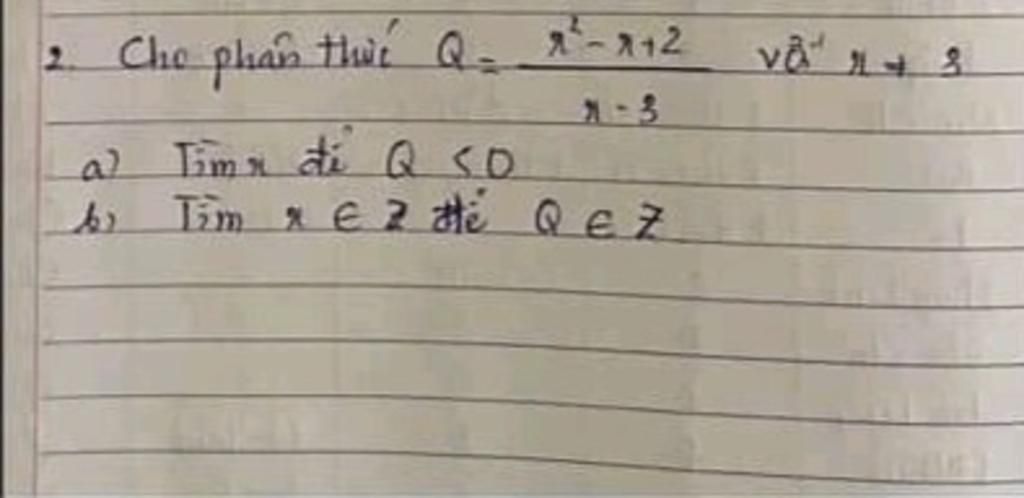 2. Cho phân thức Q = x² - x + 2 / x - 3 với x ≠ 3
a) Tìm x để Q < 0
b) Tìm x ∈ Z để Q ∈ Z